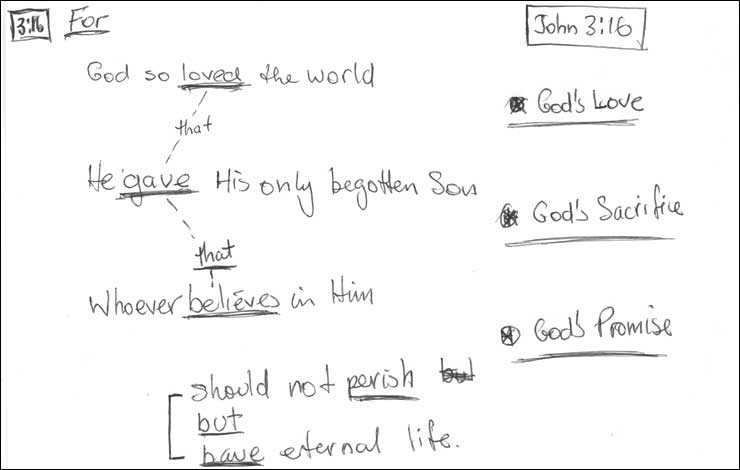 3:16 For
John 3:16
God so loved the world
God's Love
that
He gave His only begotten Son
God's Sacrifice
that
Whoever believes in Him
God's Promise
should not perish but
but
have eternal life.